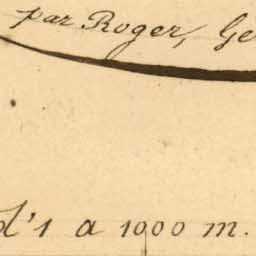 par Roger, Ge
d'1 a 1000 m.